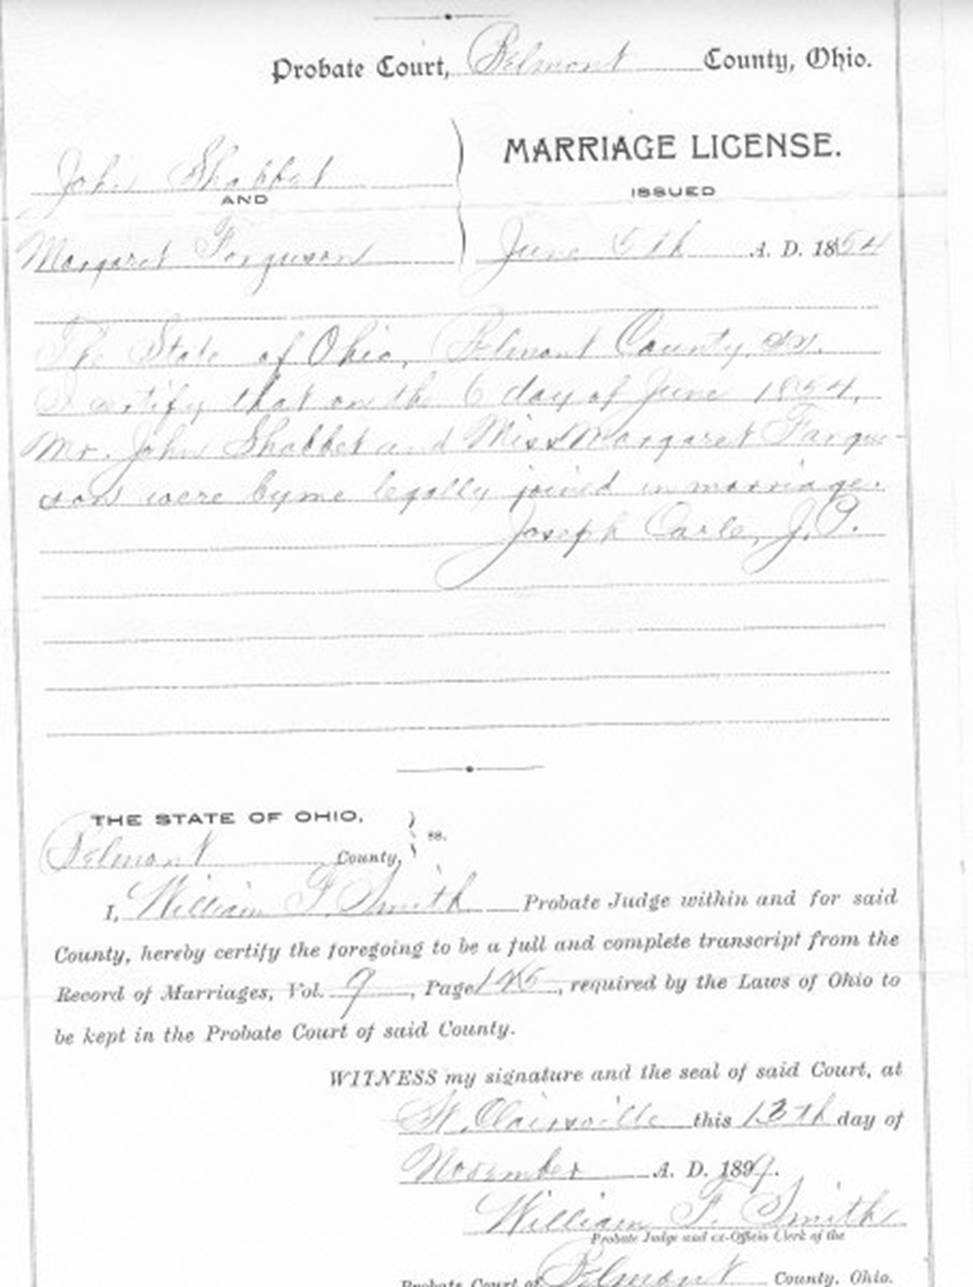 Probate Court, Belmont County, Ohio.
John Shabbet
AND
Margaret Ferguson
MARRIAGE LICENSE.
ISSUED
June 5th A. D. 1854
The State of Ohio, Belmont County, ss.
I certify that on the 6 day of June 1854,
Mr. John Shabbet and Miss Margaret Fargu-
son were by me legally joined in marriage.
Joseph Carle, J.P.
THE STATE OF OHIO,
Belmont County, ss.
I, William F. Smith Probate Judge within and for said
County, hereby certify the foregoing to be a full and complete transcript from the
Record of Marriages, Vol. 9, Page , required by the Laws of Ohio to
be kept in the Probate Court of said County.
WITNESS my signature and the seal of said Court, at
St. Clairsville this 13th day of
November A. D. 1899.
William F. Smith
Probate Judge and ex-Officio Clerk of the
Probate Court of Belmont County, Ohio.